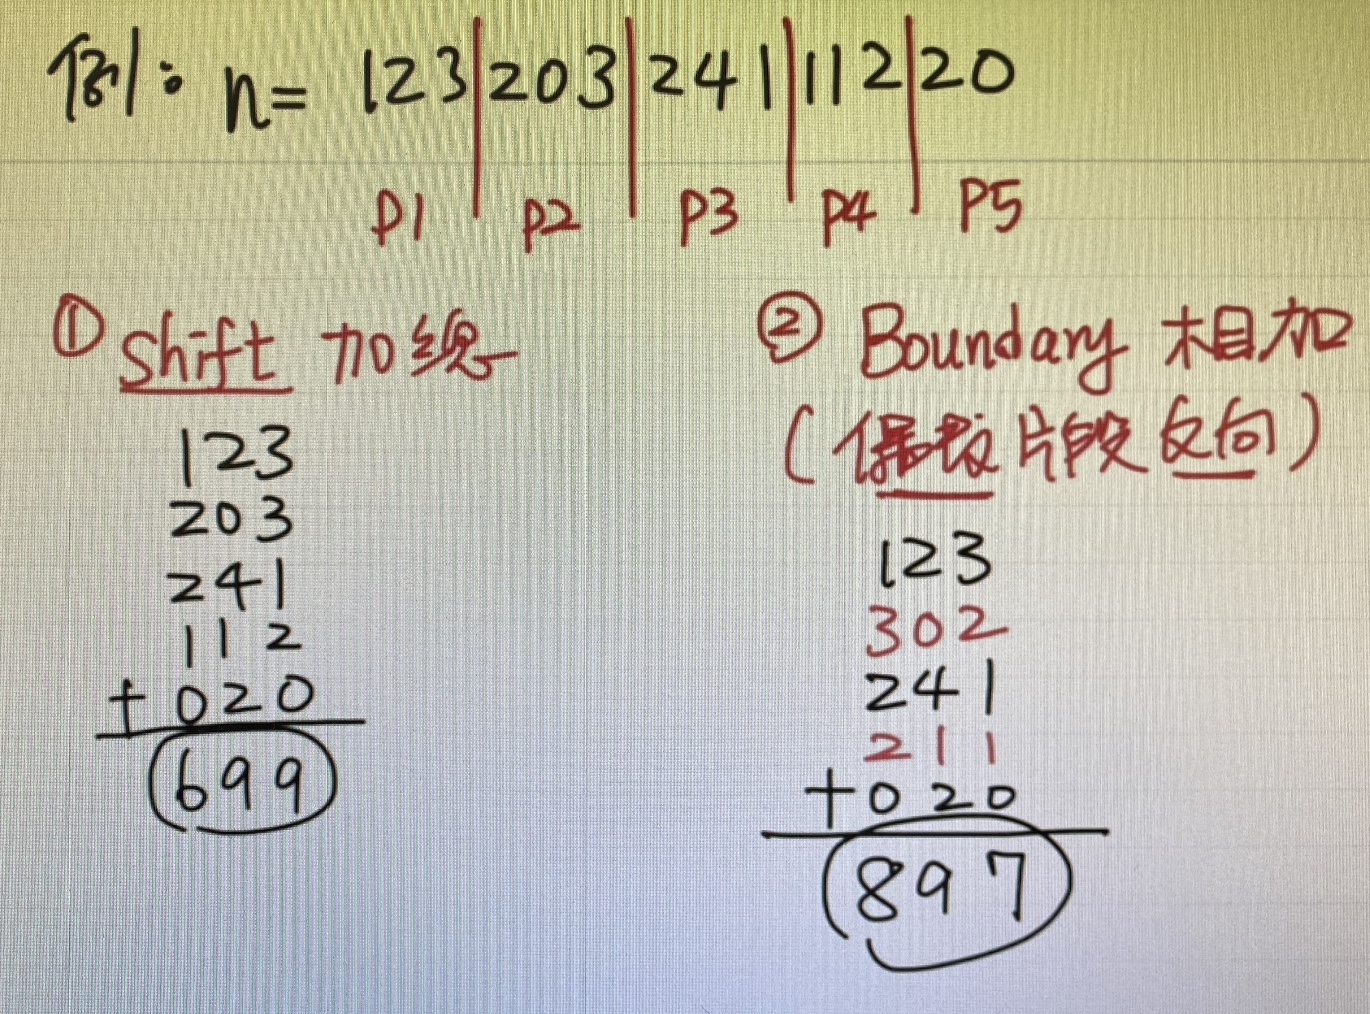 例: n= 123|203|241|112|20
P1 P2 P3 P4 P5
① Shift 加總
123
203
241
112
+020
699
② Boundary 相加
(偶數片段反向)
123
302
241
211
+020
897